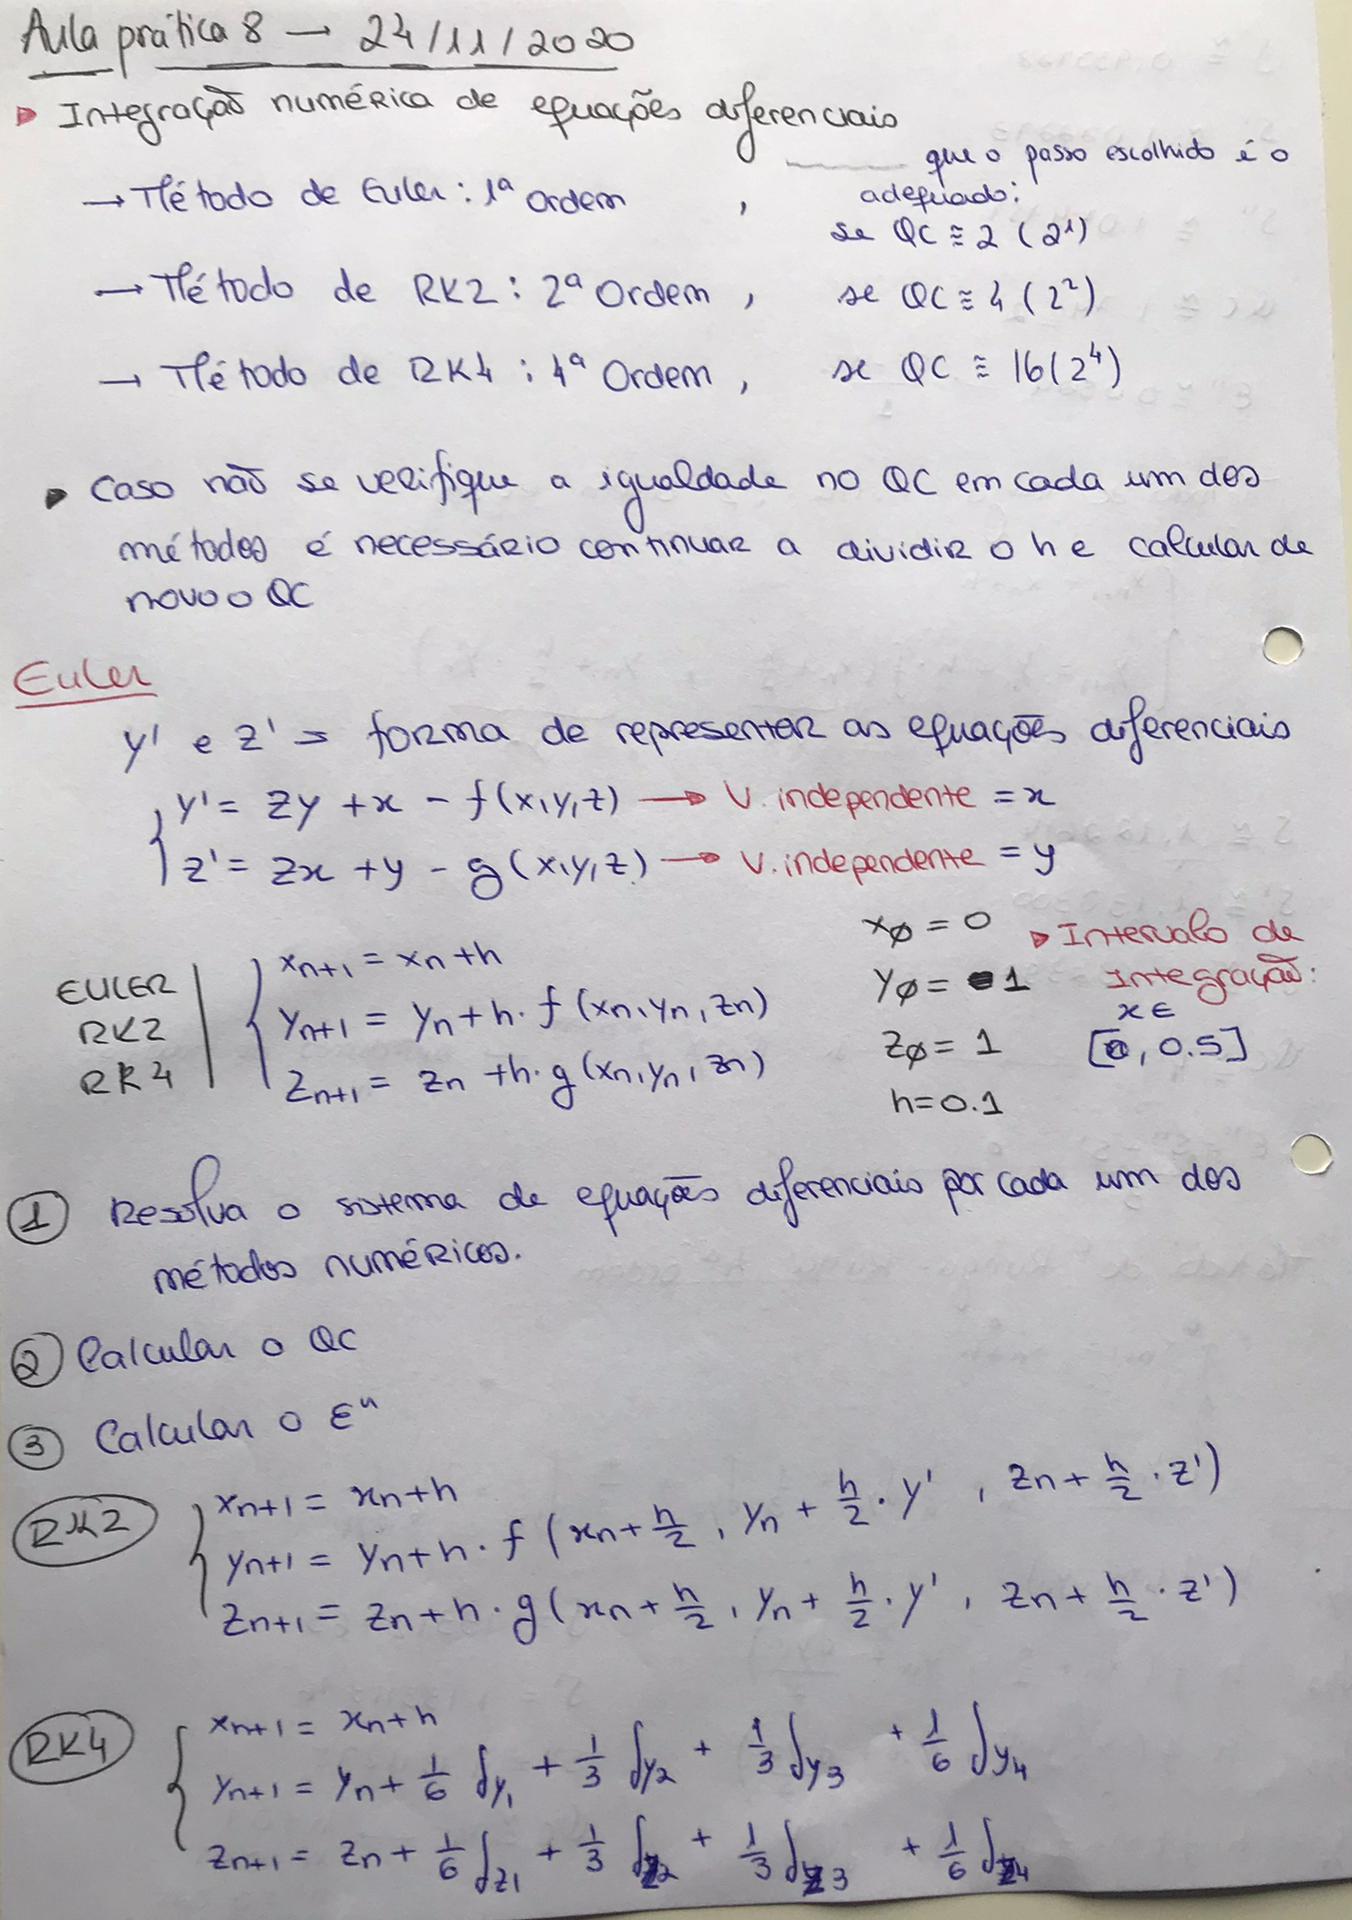 Aula prática 8 — 24/11/2020
Integração numérica de equações diferenciais
______ que o passo escolhido é o
adequado:
→ Método de Euler: 1ª Ordem , se QC ≅ 2 (2¹)
→ Método de RK2: 2ª Ordem , se QC ≅ 4 (2²)
→ Método de RK4: 4ª Ordem , se QC ≅ 16 (2⁴)
Caso não se verifique a igualdade no QC em cada um dos
métodos é necessário continuar a dividir o h e calcular de
novo o QC
Euler
y' e z' = forma de representar as equações diferenciais
y' = zy + x - f(x,y,z) → V. independente = x
z' = zx + y - g(x,y,z) → V. independente = y
EULER
RK2
RK4
xn+1 = xn + h
yn+1 = yn + h · f(xn, yn, zn)
zn+1 = zn + h · g(xn, yn, zn)
x0 = 0
y0 = 1
z0 = 1
h = 0.1
Intervalo de
Integração:
x ∈
[0, 0.5]
① Resolva o sistema de equações diferenciais por cada um dos
métodos numéricos.
② Calcular o QC
③ Calcular o ε"
RK2
xn+1 = xn + h
yn+1 = yn + h · f (xn + h/2, yn + h/2 · y', zn + h/2 · z')
zn+1 = zn + h · g (xn + h/2, yn + h/2 · y', zn + h/2 · z')
RK4
xn+1 = xn + h
yn+1 = yn + 1/6 δy1 + 1/3 δy2 + 1/3 δy3 + 1/6 δy4
zn+1 = zn + 1/6 δz1 + 1/3 δz2 + 1/3 δz3 + 1/6 δz4